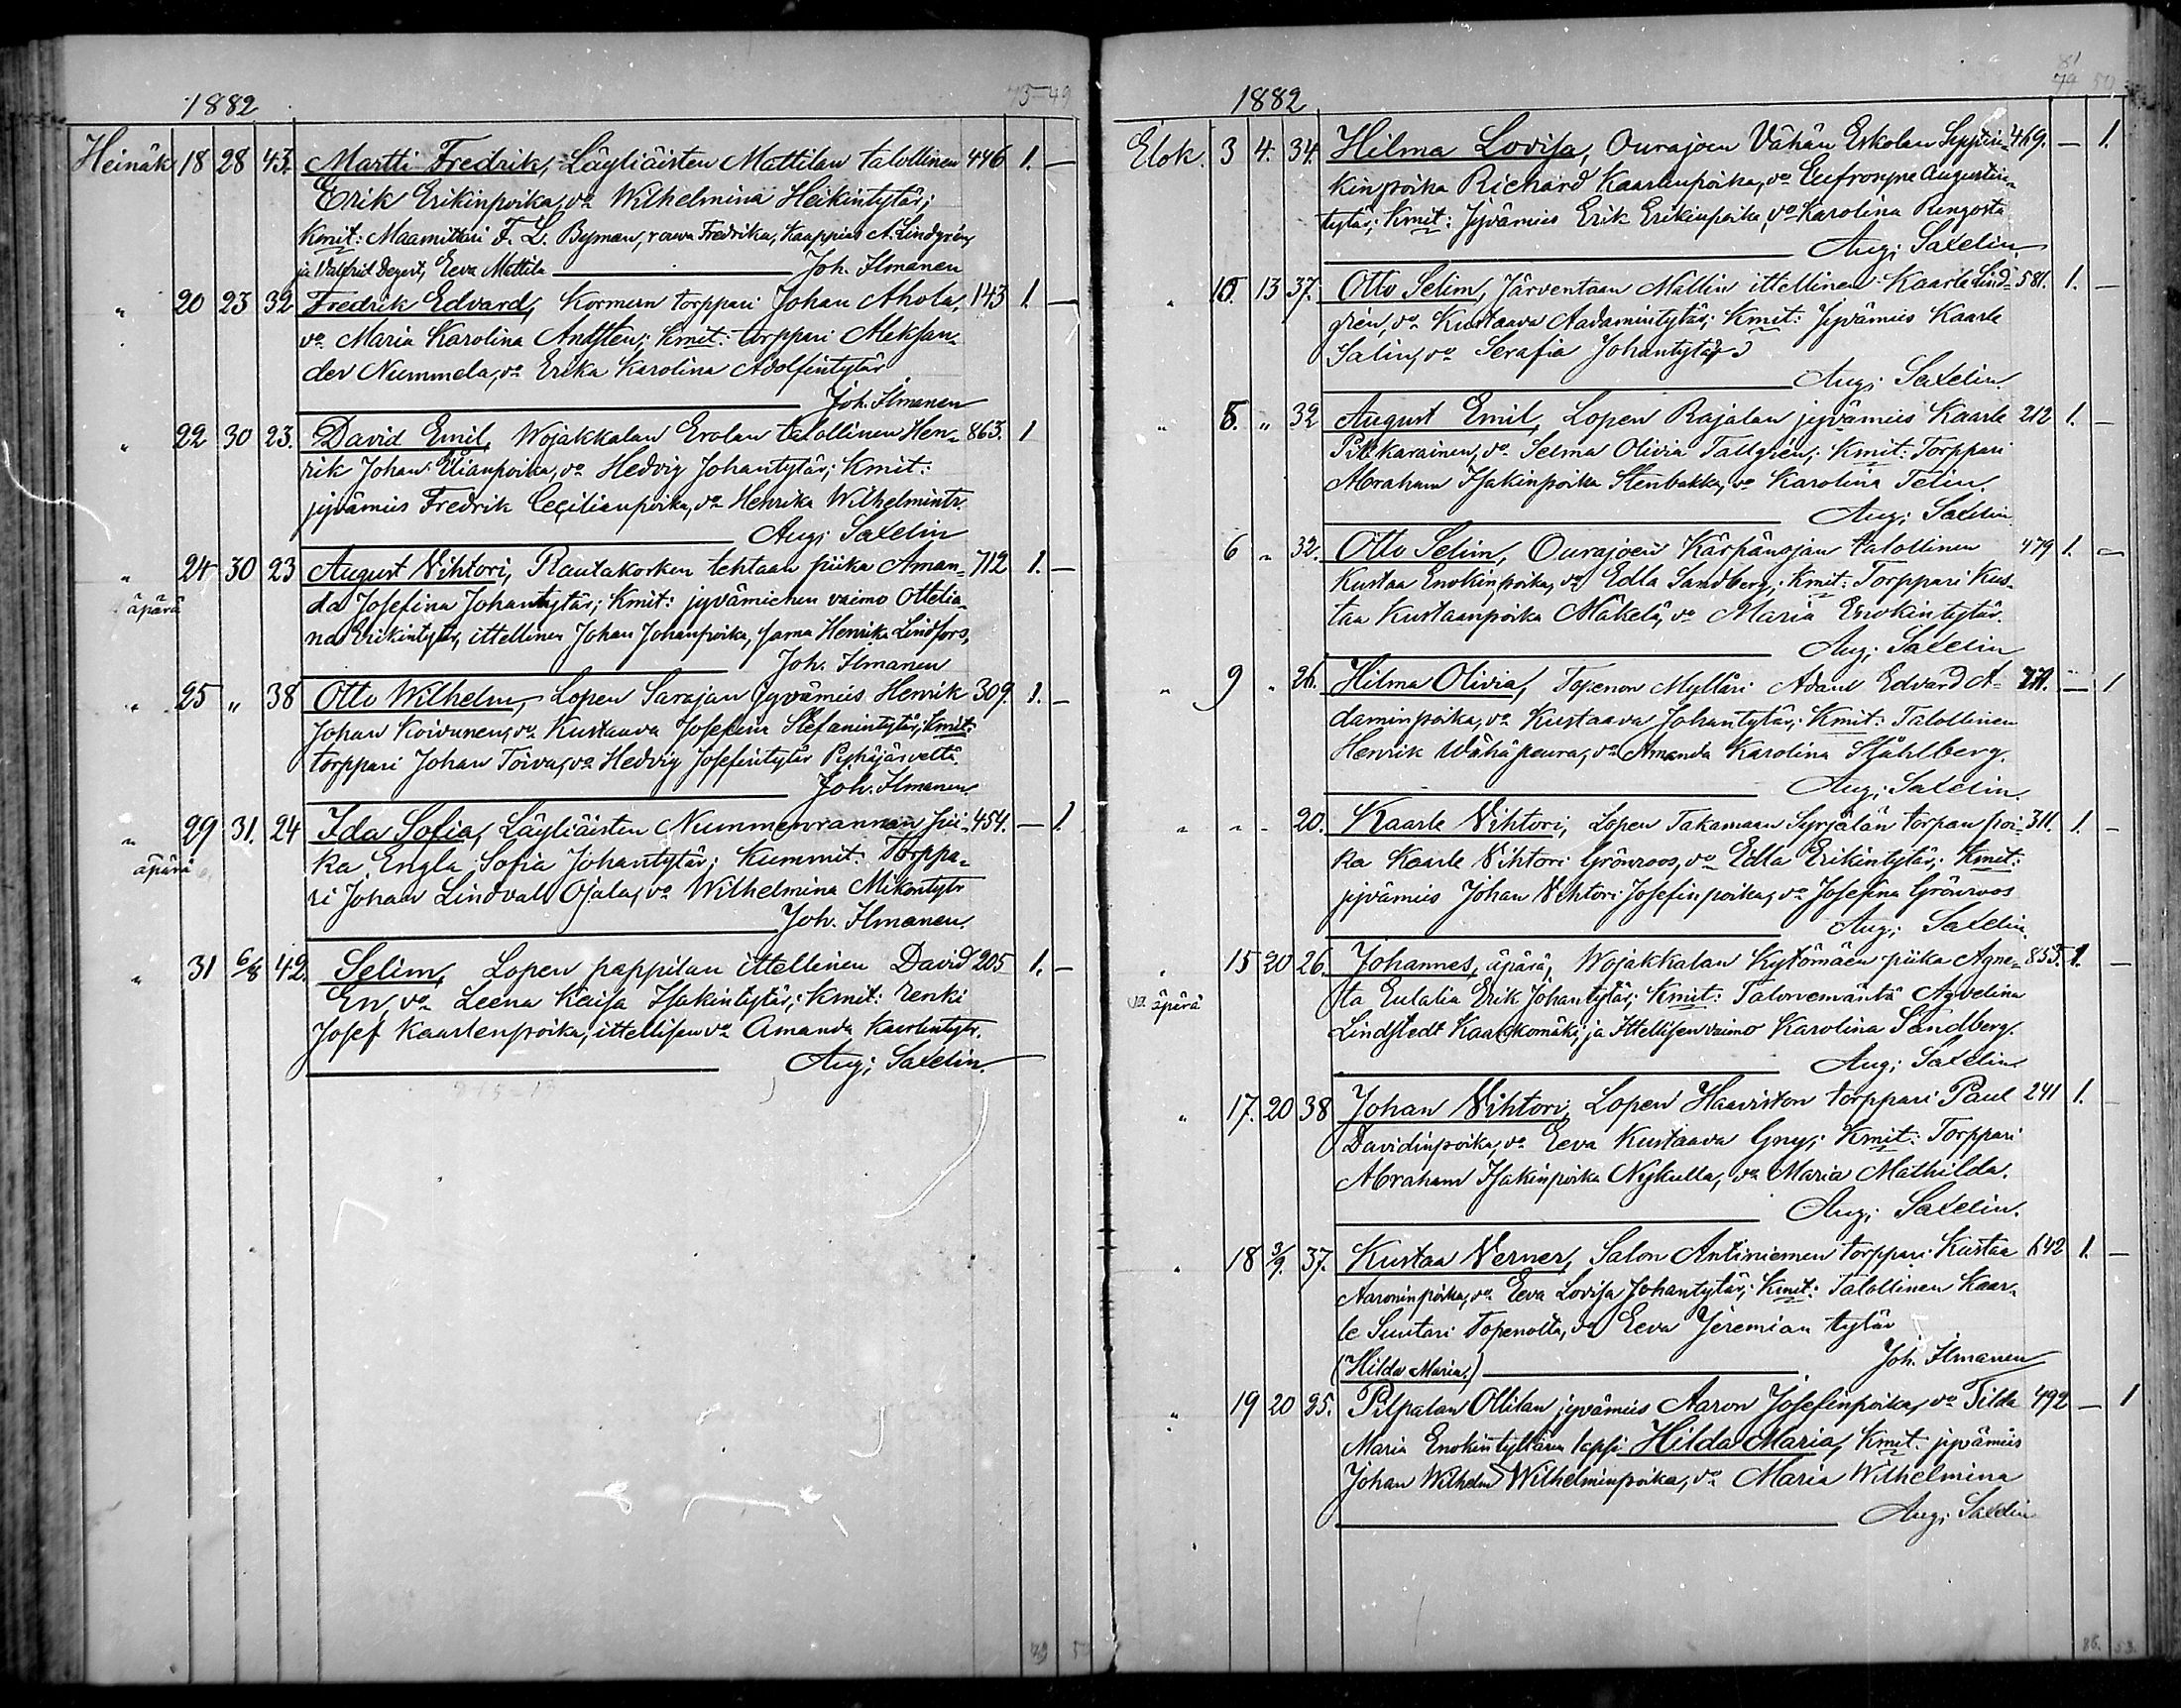 1882
Heinäk 18 28 43. Martti Fredrik, Läyliäisten Mattilan talollinen 446 1. —
Erik Erikinpoika, vo Wilhelmina Heikintytär;
Kmit: Maamittari F. L. Byman, rouva Fredrika, Kauppias A. Lindgrén,
ja Valfrid Degert, Eeva Mattila Joh. Ilmanen
" 20 23 32 Fredrik Edvard, Kormun torppari Johan Ahola, 143 1. —
vo Maria Karolina Antsten; Kmit: torppari Aleksan-
der Nummela, vo Erika Karolina Adolfintytär
Joh. Ilmanen
" 22 30 23. David Emil, Wojakkalan Erolan talollinen Hen- 863. 1
rik Johan Elianpoika, vo Hedvig Johantytär; Kmit:
jyvämies Fredrik Ceçilianpoika, vo Henrika Wilhelmintr.
Aug; Saxelin
" 24 30 23 August Vihtori, Rautakosken tehtaan piika Aman- 712 1. —
äpärä da Josefina Johantytär; Kmit: jyvämiehen vaimo Ottilia-
na Erikintytär, ittellinen Johan Johanpoika, sama Henrika Lindfors,
Joh. Ilmanen
" 25 " 38 Otto Wilhelm, Lopen Sarajan jyvämies Henrik 309. 1. —
Johan Koivunen, vo Kustaava Josefina Stefanintytär; Kmit:
torppari Johan Toiva, vo Hedvig Josefintytär Pyhäjärveltä
Joh. Ilmanen.
" 29 31. 24 Ida Sofia, Läyliäisten Nummenrannan pii- 454. — 1.
äpärä ka Engla Sofia Johantytär; Kummit: Torppa-
ri Johan Lindvall Ojala, vo Wilhelmina Mikontytr
Joh. Ilmanen.
" 31 6/8 42. Selim, Lopen pappilan ittellinen David 205 1. —
En, vo Leena Kaisa Isakintytär; Kmit: renki
Josef Kaarlenpoika, ittellisen vo Amanda Kaarlentytr.
Aug; Saxelin.
1882
Elok. 3 4. 34. Hilma Lovisa, Ourajoen Vähän Eskolan Seppän- 469. — 1.
kinpoika Richard Kaarlenpoika, vo Eufrosyne Augustin-
tytär; Kmit: Jyvämies Erik Erikinpoika, vo Karolina Ringosta
Aug; Saxelin
" 10. 13 37. Otto Selim, Järventaan Mallin ittellinen Kaarle Lind- 581. 1. —
grén, vo Kustaava Aadamintytär; Kmit: Jyvämies Kaarle
Salin, vo Serafia Johantytär
Aug; Saxelin
" 5. " 32 August Emil, Lopen Rajalan jyvämies Kaarle 212 1. —
Pilkkarainen, vo Selma Olivia Tallgrén; Kmit: Torppari
Abraham Isakinpoika Stenbakka, vo Karolina Telin.
Aug; Saxelin
6 " 32. Otto Selim, Ourajoen Kärpänojan talollinen 479 1. —
Kustaa Enokinpoika, vo Edla Sandberg; Kmit: Torppari Kus-
taa Kustaanpoika Mäkelä, vo Maria Enokintytär.
Aug; Saxelin
" 9 " 26. Hilma Olivia, Topenon Mylläri Adam Edvard A- 771. — 1
daminpoika, vo Kustaava Johantytär; Kmit: Talollinen
Henrik Wähäpeura, vo Amanda Karolina Ståhlberg.
Aug; Saxelin.
" " " 20. Kaarle Vihtori, Lopen Takamaan Syrjälän torpan poi- 311. 1. —
ka Kaarle Vihtori Grönroos, vo Edla Erikintytär; Kmit:
jyvämies Johan Vihtori Josefinpoika, vo Josefina Grönroos
Aug; Saxelin.
" 15 20 26. Johannes, äpärä, Wojakkalan Kytömäen piika Agne- 855. 1. —
äpärä ta Eulalia Erik Johantytär; Kmit: Talonemäntä Agvelina
Lindstedt Kaaskomäki, ja Ittellisen vaimo Karolina Sandberg.
Aug; Saxelin
" 17. 20 38 Johan Vihtori, Lopen Haaviston torppari Paul 241 1. —
Davidinpoika, vo Eeva Kustaava Gny; Kmit: Torppari
Abraham Isakinpoika Nykulla, vo Maria Mathilda.
Aug; Saxelin.
" 18 3/9. 37. Kustaa Verner, Salon Antiniemen torppari Kustaa 642 1. —
Aaroninpoika, vo Eeva Lovisa Johantytär; Kmit: Talollinen Kaar-
le Suutari Topenolta, vo Eeva Jeremian tytär
(Hilda Maria.) Joh. Ilmanen
" 19 20 25. Pilpalan Ollilan jyvämies Aaron Josefinpoika, vo Tilda 492 — 1
Maria Enokintyttären lapsi Hilda Maria, Kmit: jyvämies
Johan Wilhelm Wilhelminpoika, vo Maria Wilhelmina
Aug; Saxelin